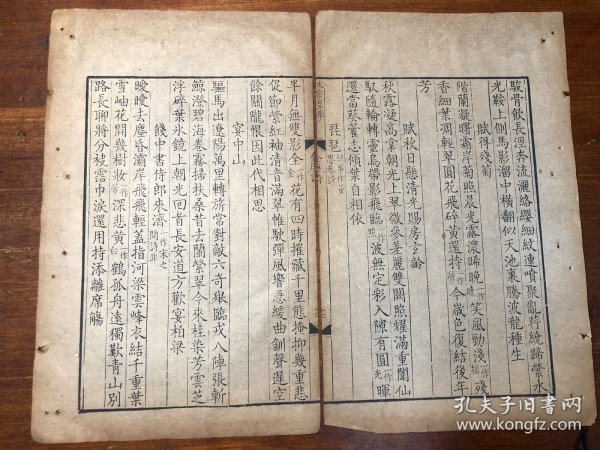 駿骨飲長涇奔流灑絡纓細紋連噴聚亂荇繞蹄縈水
光鞍上側馬影溜中橫翻似天池裏騰波龍種生
賦得淺菊
階蘭凝曙霜岸菊照晨光露濃晞晚笑風勁淺殘
香細葉凋輕翠圓花飛碎黃還持今歲色復結後年
芳
賦秋日懸清光賜房玄齡
秋露凝高掌朝光上翠微參差麗雙闕照耀滿重闈仙
馭隨輪轉靈烏帶影飛臨波無定彩入隙有圓暉
還當葵藿志傾葉自相依
琵琶
半月無雙影全花有四時摧藏千里態掩抑幾重悲
促節縈紅袖清音滿翠帷駛彈風響急緩曲釧聲遲空
餘關隴恨因此代相思
宴中山
驅馬出遼陽萬里轉旂常對敵六奇舉臨戎八陣張斬
鯨澄碧海卷霧掃扶桑昔去蘭縈翠今來桂染芳雲芝
浮碎葉冰鏡上朝光回首長安道方歡宴柏梁
餞中書侍郎來濟
曖曖去塵昏灞岸飛飛輕蓋指河梁雲峰衣結千重葉
雪岫花開幾樹妝深悲黃鶴孤舟遠獨歎青山別
路長聊將分袂霑巾淚還用持添離席觴
孔夫子旧书网
www.kongfz.com